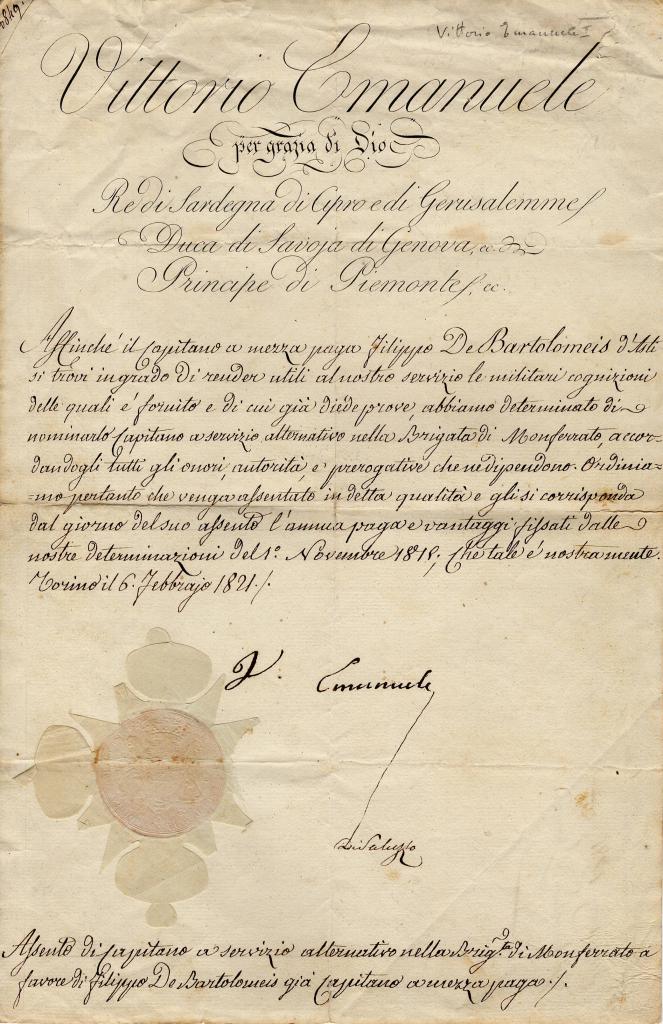 6849.
Vittorio Emanuele I
Vittorio Emanuele
per grazia di Dio
Re di Sardegna di Cipro e di Gerusalemme
Duca di Savoja di Genova, ec. &
Principe di Piemonte, ec.
Affinché il Capitano a mezza paga Filippo De Bartolomeis d'Asti
si trovi in grado di render utili al nostro servizio le militari cognizioni
delle quali é fornito e di cui già diede prove, abbiamo determinato di
nominarlo Capitano a servizio alternativo nella Brigata di Monferrato, accor-
dandogli tutti gli onori, autorità, e prerogative che ne dipendono. Ordinia-
-mo pertanto che venga assentato in detta qualità e gli si corrisponda
dal giorno del suo assento l'annua paga e vantaggi fissati dalle
nostre determinazioni del 1.º Novembre 1815; Che tale é nostra mente.
Torino il 6. Febbrajo 1821./.
V. Emanuele
Di Saluzzo
Assento di Capitano a servizio alternativo nella Brig.ta di Monferrato a
favore di Filippo De Bartolomeis già Capitano a mezza paga./.